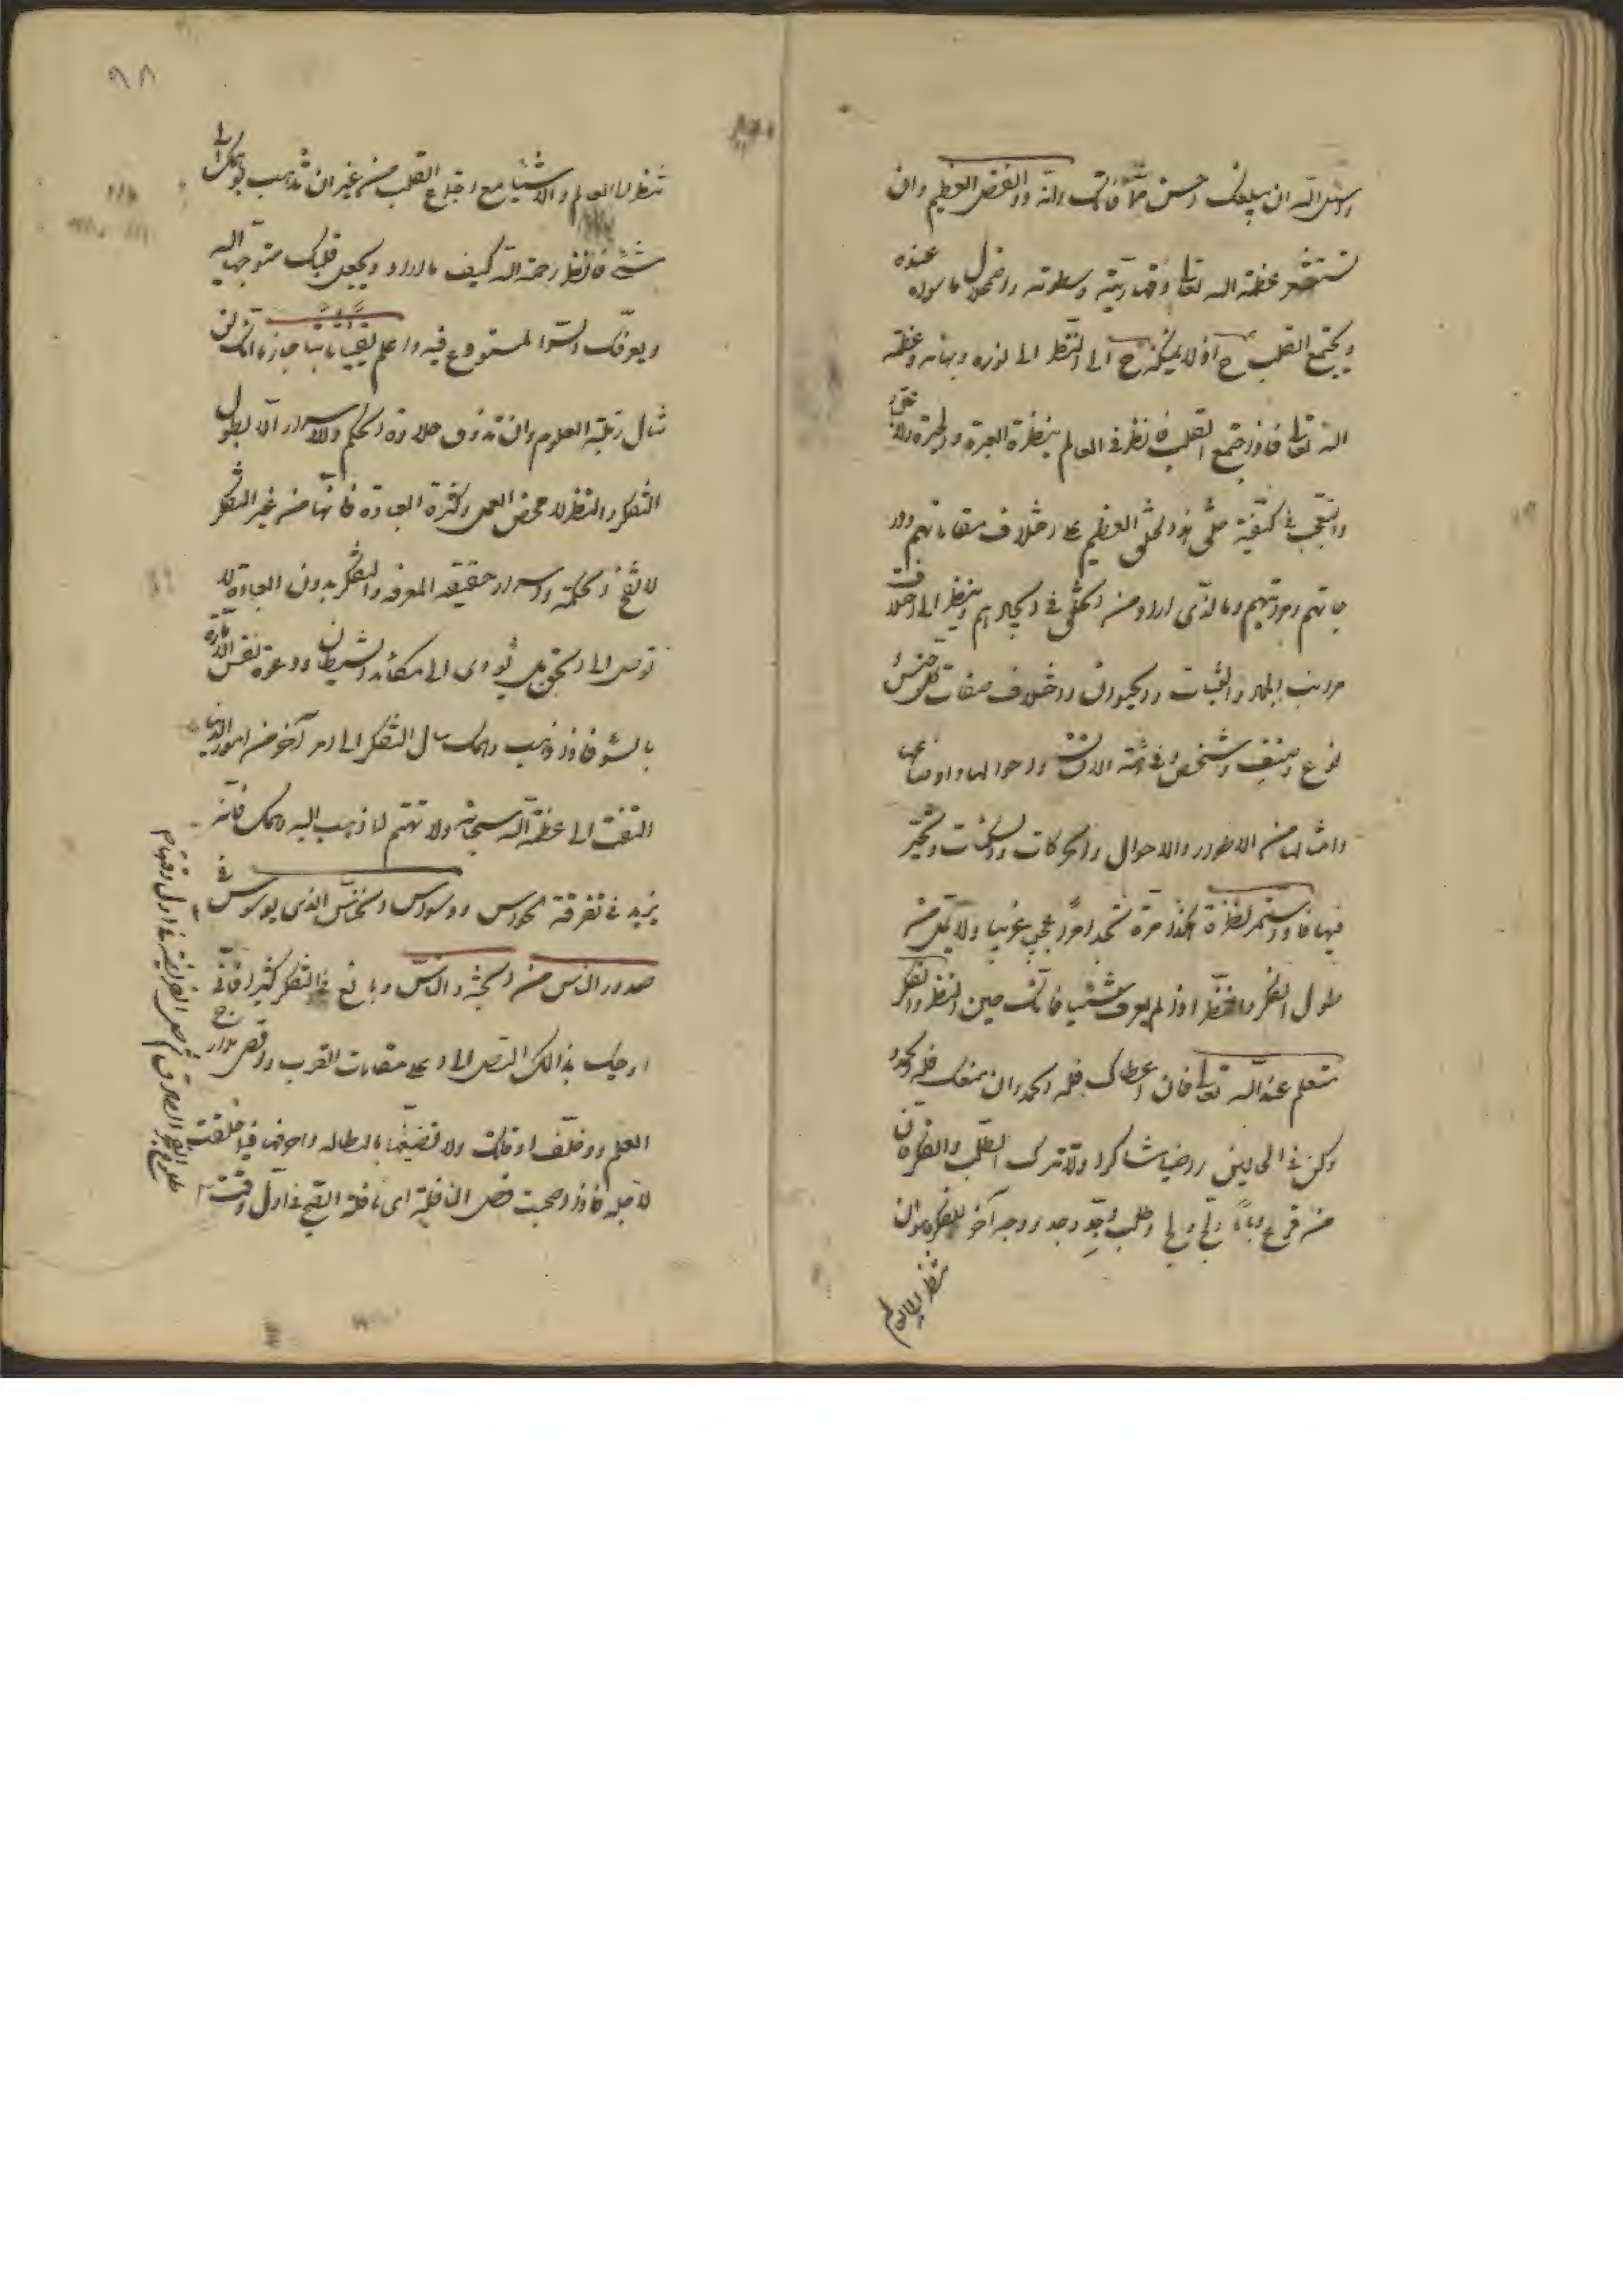 واسئل الله ان يبلغك احسن مما فاتك والله ذو الفضل العظيم وان
تستشعر عظمة الله تعالى وقهاريته وسطوته واضمحلال ما سواه عنده
ويجتمع القلب ح اذ لا يمكنه ح الا النظر الى نوره وبهائه وعظمة
الله تعالى فاذا اجتمع القلب فانظر في العالم بنظرة العبرة والحيرة والاعتبار
والتعجب في كيفية خلق هذا الخلق العظيم على اختلاف مقاماتهم ودر
جاتهم ومراتبهم وما الذي اراد من الخلق في ايجادهم وينظر الى اختلاف
مراتب الجماد والنبات والحيوان واختلاف صفات كل جنس و
نوع وصنف وشخص وفي هيئة الافلاك واحوالها واوضاعها
وامثالها من الاطوار والاحوال والحركات والسكنات وتتحير
فيها فاذا استمر نظرك هكذا مرة تجد امرا عجيبا غريبا ولا تمل من
طول الفكر والنظر اذا لم تعرف شيئا فانك حين النظر والتفكر
متعلم عند الله تعالى فان اعطاك فله الحمد وان منعك فله الحمد
وكن في الحالين راضيا شاكرا ولا تترك الطلب والفكر فان
من قرع بابا ولج ولج ومن طلب وجد وجد ووجه آخر للفكر هو ان
تنظر الى العالم
٩٨
تنظر الى العالم والاشياء مع اجتماع القلب من غير ان تذهب بوهمك الى
شئ فانظر رحمة الله كيف ما اراد ويجعل قلبك متوجها اليه
ويعرفك السر المستودع فيه واعلم يقينا ثابتا جازما انك لن
تنال رتبة العلوم وان تذوق حلاوة الحكم والاسرار الا بطول
التفكر والنظر لا محض العمل وكثرة العبادة فانها من غير التفكر
لا تفتح الحكمة واسرار حقيقة المعرفة والتفكر بدون العبادة لا
توصل الى الحق بل تؤدى الى مكائد الشيطان ودعوة نفس الامارة
بالسوء فاذا ذهب وهمك حال التفكر الى امر آخر من امور الدنيا
التفت الى عظمة الله سبحانه ولا تهتم لما ذهب اليه وهمك فانه
يزيد في تفرقة الحواس ووسواس الخناس الذى يوسوس في
صدور الناس من الجنة والناس وبالغ في التفكر كثيرا فاني
ارجيك بذالك التصل الى اعلى مقامات القرب واقصى مدارج
العلم ووظف اوقاتك ولا تضيعها بالبطالة واصرفها فيما خلقت
لاجله فاذا اصبحت فصل النافلة اى نافلة الصبح في اول وقت
طلوع الفجر الصادق ثم صل الفريضة في اول وقتها ثم